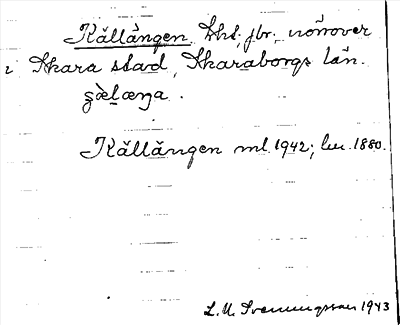 Källängen. Lht, jbr., norrover
i Skara stad, Skaraborgs län.
ʂæ̀læŋa.
Källängen ml. 1942; bu. 1880.
L. M. Svenungsson 1943